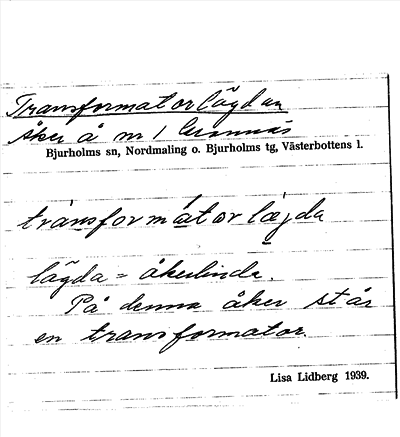 Transformatorlägdan
Åker å nr 1 Grannäs
Bjurholms sn, Nordmaling o. Bjurholms tg, Västerbottens l.
transformàtorlæjda
lägda = åkerlinda.
På denna åker står
en transformator.
Lisa Lidberg 1939.